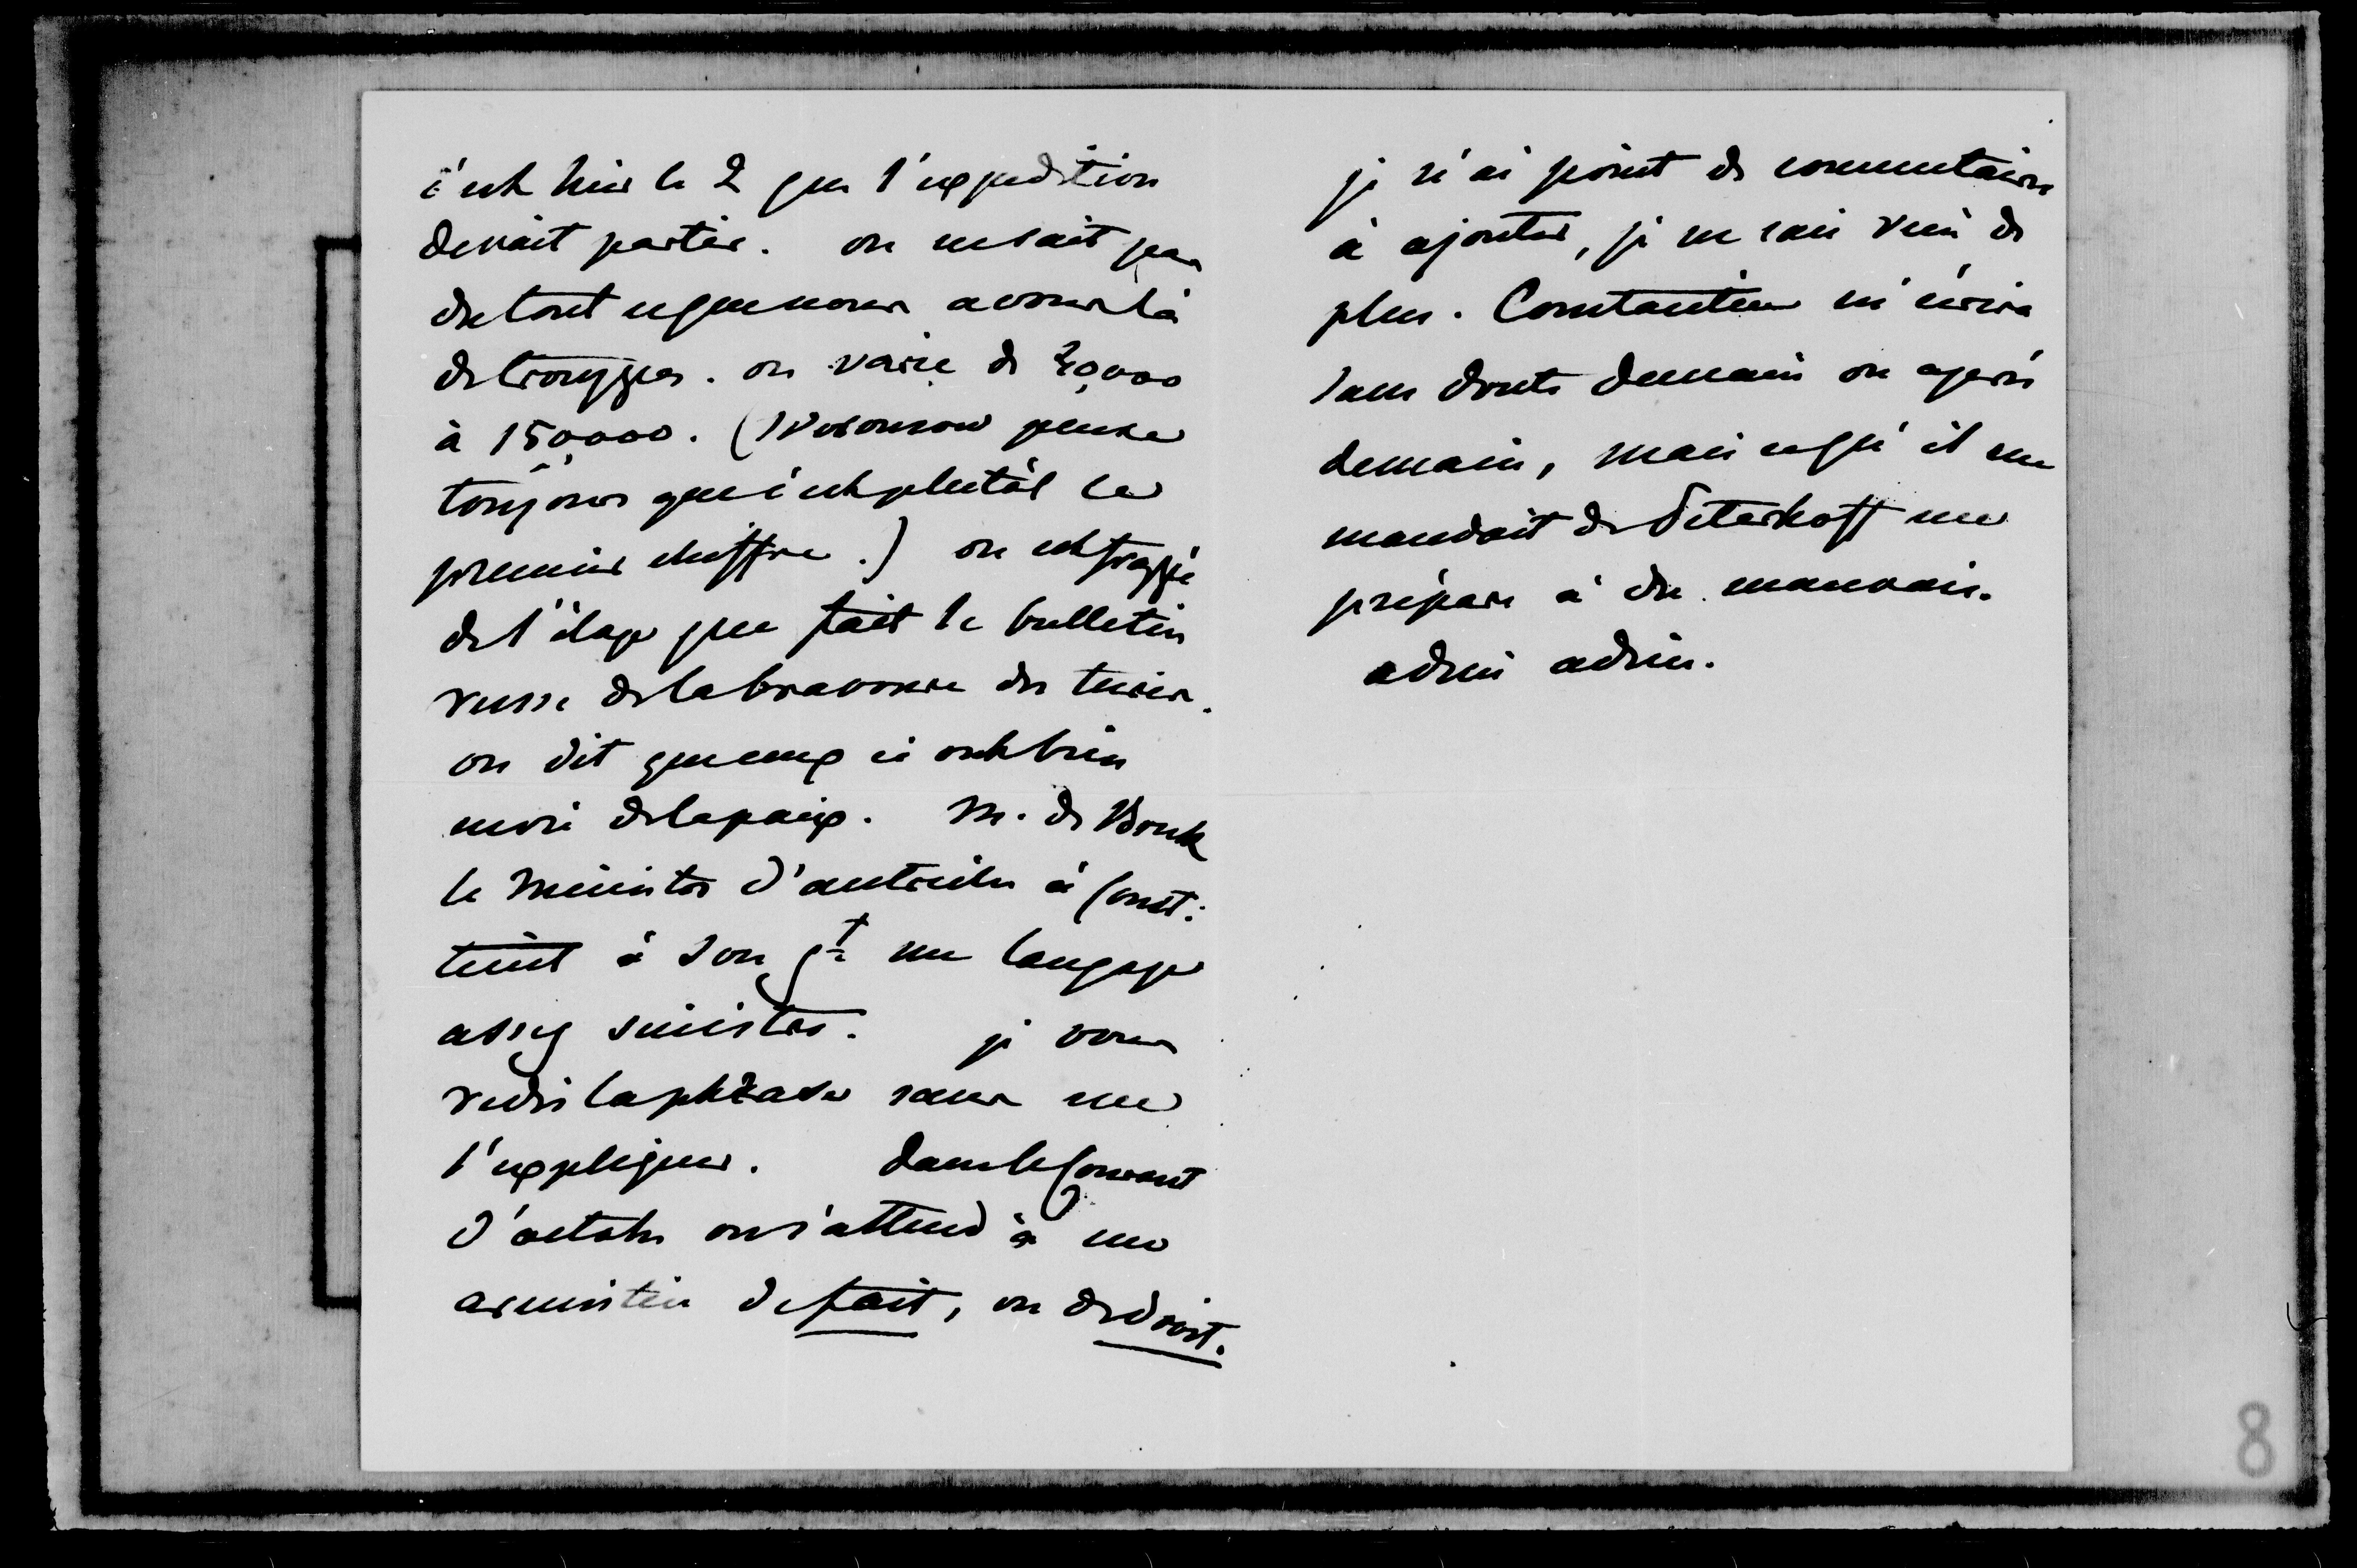 c'est hier le 2 que l'expedition
devait partir. on ne sait pas
du tout ce que nous avons là
de trouppes. on varie de 30,000
à 150,000. (Woronsow pense
toujours que c'est plutôt le
premier chiffre.) on est frappé
de l'éloge que fait le bulletin
russe de la bravoure des turcs.
on dit que ceux ci ont bien
envie de la paix. M. de Bruk
le Ministre d'autriche à Const:
tient à son gt un langage
assez sinistre. je vous
redis la phrase sans me
l'expliquer. dans le courant
d'octobre on s'attend à une
armistice de fait, ou de droit.
je n'ai point de commentaire
à ajouter, je ne sais rien de
plus. Constantin m'écrira
sans doute demain ou après
demain, mais ce qu'il me
mandait de Peterhoff me
prépare à du mauvais.
adieu adieu.
8